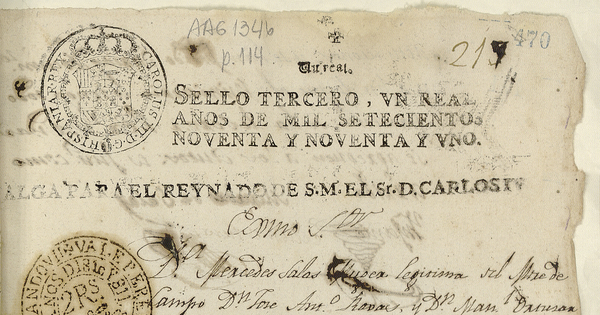 AAG 1346
p. 114
215
470
Un real.
CAROLUS III D G HISPANIAR REX
SELLO TERCERO, VN REAL
AÑOS DE MIL SETECIENTOS
NOVENTA Y NOVENTA Y VNO.
ALGA PARA EL REYNADO DE S.M. EL Sr. D. CARLOS IV
Exmo Sor
D.a Mercedes Salas legitima del Mtre de
Campo Dn Jose Anto y Dn Man.
2 Rs